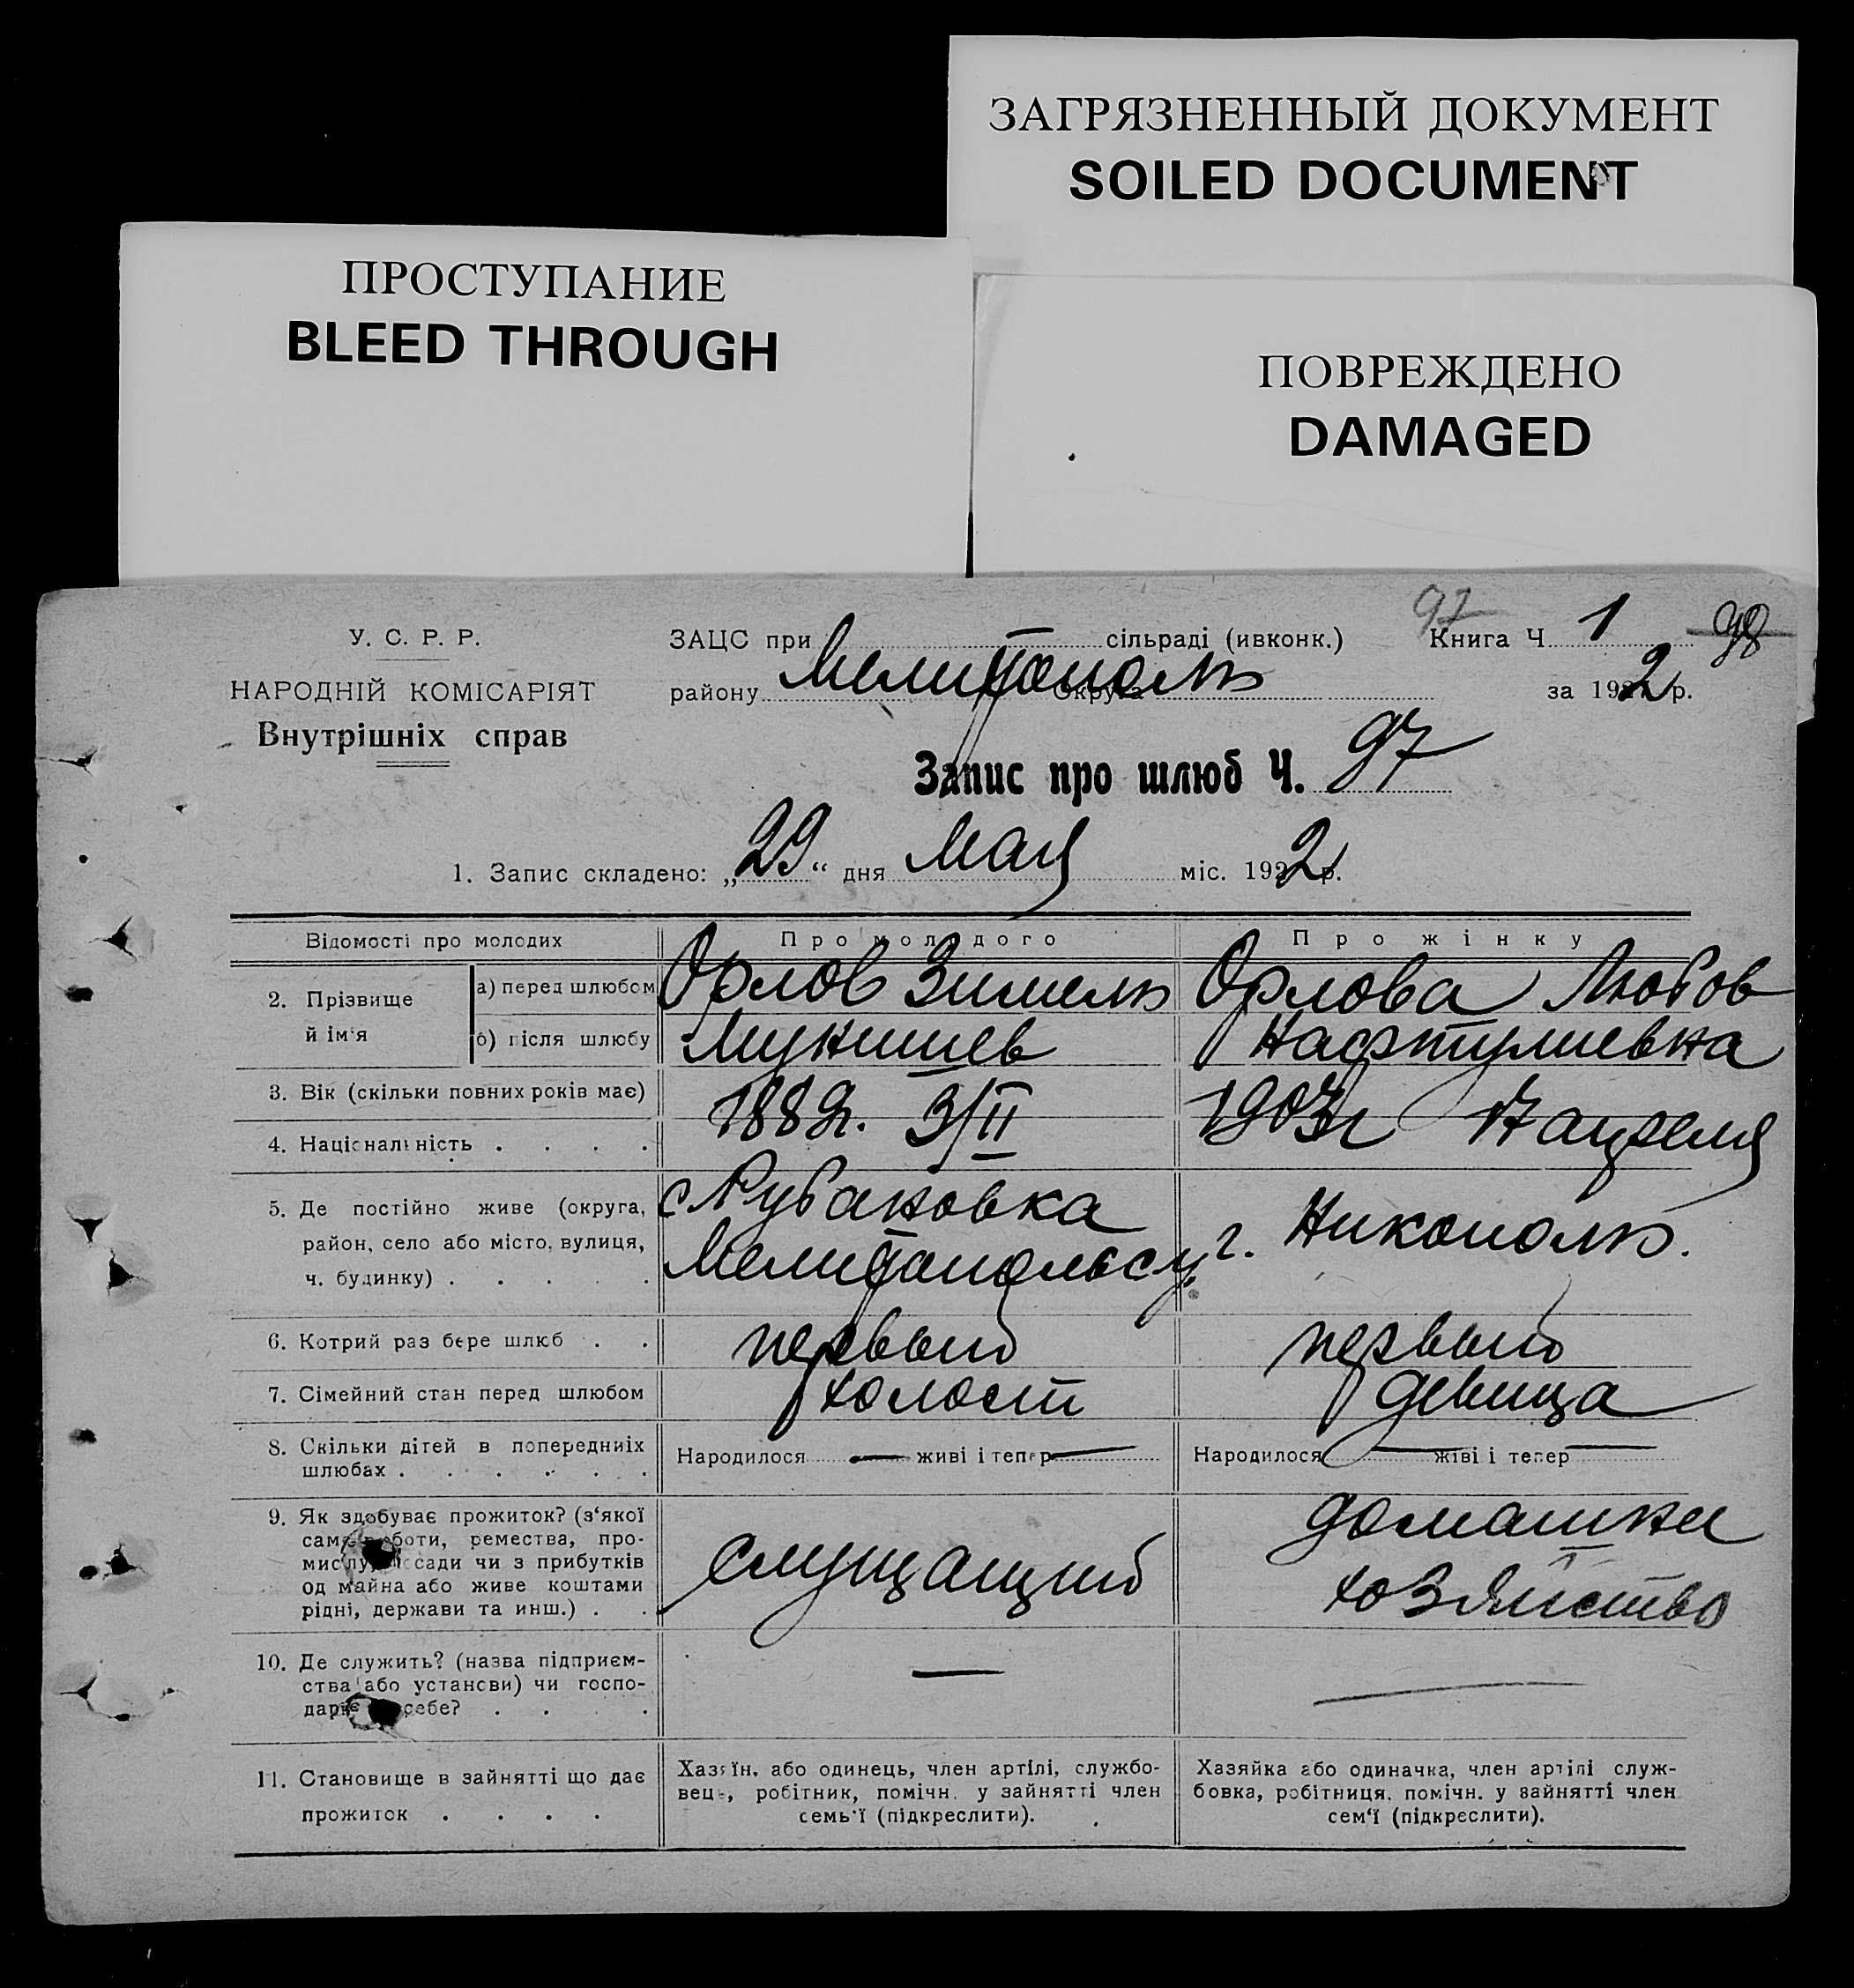 ЗАГРЯЗНЕННЫЙ ДОКУМЕНТ
SOILED DOCUMENT
ПРОСТУПАНИЕ
BLEED THROUGH
ПОВРЕЖДЕНО
DAMAGED
97
У. С. Р. Р.
ЗАЦС при сільраді (ивконк.) Книга Ч 1 98
НАРОДНІЙ КОМІСАРІЯТ
району Мелитополь Округа за 1922 р.
Внутрішніх справ
Запис про шлюб Ч. 97
1. Запис складено: „29“ дня Мая міс. 1922 р.
Відомості про молодих
Про молодого
Про жінку
2. Прізвище й ім'я
а) перед шлюбом
Орлов Зимель
Орлова Любов
б) після шлюбу
Нафтулиевна
3. Вік (скільки повних років має)
4. Національність . . . .
1889г. 3/II
1903г 17 апреля
5. Де постійно живе (округа,
район, село або місто, вулиця,
ч. будинку) . . . . .
с Рубановка
Мелитопольск у.
г. Никополь.
6. Котрий раз бере шлюб . .
первый
первый
7. Сімейний стан перед шлюбом
холост
девица
8. Скільки дітей в попередниїх
шлюбах . . . . . .
Народилося — живі і тепер —
Народилося — живі і тепер —
9. Як здобуває прожиток? (з‘якої
само роботи, ремества, про-
мислу, посади чи з прибутків
од майна або живе коштами
рідні, держави та инш.) . .
служащий
домашнее
хозяйство
10. Де служить? (назва підприєм-
ства або установи) чи госпо-
дарює себе? . . . .
—
—
11. Становище в зайнятті що дає
прожиток . . . .
Хазяїн, або одинець, член артілі, службо-
вець, робітник, помічн. у зайнятті член
семь‘ї (підкреслити).
Хазяйка або одиначка, член артілі служ-
бовка, робітниця, помічн. у зайнятті член
сем‘ї (підкреслити).